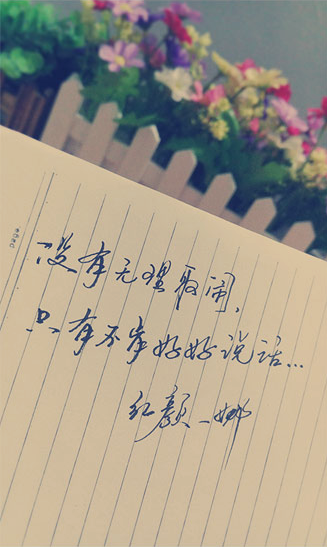 没有无理取闹，
只有不肯好好说话…
红颜一娜